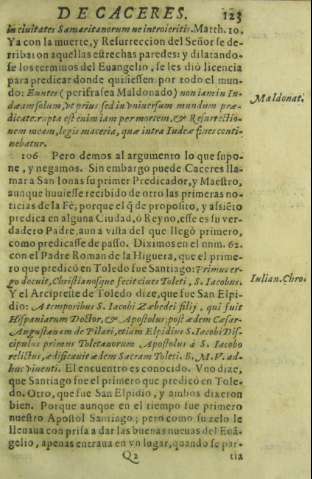 DE CACERES. 123
in ciuitates Samaritanorum ne introieritis. Matth. 10.
Ya con la muerte, y Resurreccion del Señor se de-
rribaron aquellas estrechas paredes: y dilatando-
se los terminos del Euangelio, se les dio licencia
para predicar donde quisiessen por todo el mun-
do: Euntes (perifrasea Maldonado) non iam in Iu-
dæam solum, vt prius sed in vniuersum mundum præ-
dicate: rupta est enim iam per mortem, & Resurrectio-
nem meam, legis maceria, quæ intra Iudeæ fines conti-
nebatur.
Maldonat.
106 Pero demos al argumento lo que supo-
ne, y negamos. Sin embargo puede Caceres lla-
mar a San Ionas su primer Predicador, y Maestro,
aunque huuiesse recibido de otro las primeras no-
ticias de la Fé, porque el q̃ de proposito, y assiẽto
predica en alguna Ciudad, ò Reyno, esse es su ver-
dadero Padre, aun a vista del que llegò primero,
como predicasse de passo. Diximos en el num. 62.
con el Padre Roman de la Higuera, que el prime-
ro que predicó en Toledo fue Santiago: Primus er-
go docuit, Christianosque fecit ciues Toleti, S. Iacobus.
Iulian. Chro.
Y el Arcipreste de Toledo dize, que fue San Elpi-
dio: A temporibus S. Iacobi Zebedei filij, qui fuit
Hispaniarum Doctor, & Apostolus; post ædem Cæsar-
Augustanam de Pilari, etiam Elpidius S. Iacobi Dis-
cipulus primus Toletanorum Apostolus à S. Iacobo
relictus, ædificauit ædem Sacram Toleti. B. M. V. ad-
huc viuenti. El encuentro es conocido. Vno dize,
que Santiago fue el primero que predicó en Tole-
do. Otro, que fue San Elpidio, y ambos dixeron
bien. Porque aunque en el tiempo fue primero
nuestro Apostol Santiago; pero como su zelo le
lleuaua con prisa a dar las buenas nueuas del Euã-
gelio, apenas entraua en vn lugar, quando se par-
Q2 tia